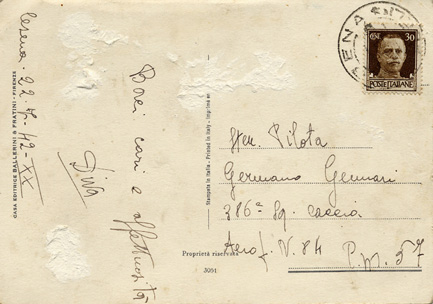 Cesena 22.
Baci cari e affettuosità
Diva
CASA EDITRICE BALLERINI & FRATINI - FIRENZE
Stampata in Italia - Printed in Italy - Imprimé en
Proprietà riservata
3091
30
POSTE ITALIANE
Pilota
Germano Gennari
386ª Sq. Caccia
Aerop. N. 84 P.M. 57